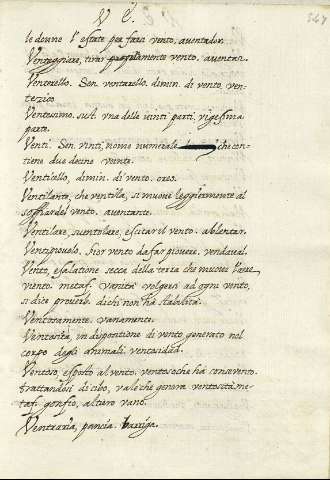 V E.
347
le donne l'estate per farsi vento. aventador.
Ventegiare, tirar vento. aventar.
Venterello. Sen. ventarello. dimin. di vento, ven-
tezico
Ventesimo. sust. una delle vinti parti. vigesima
parte.
Venti. Sen. vinti, nome numerale che con-
tiene due decine veinte.
Venticello, dimin. di vento. oreo.
Ventilante, che ventila, si muove leggiermente al
soffiar del vento. aventante.
Ventilare, suentolare, escitar el vento. ablentar.
Ventipiovolo. Sior vento da far piovere. vendaval.
Vento, esalatione secca della terra che muove l'aere
viento. metaf. vanità volgersi ad ogni vento,
si dice proverb. di chi non ha stabilità.
Ventosamente. vanamente.
Ventosità, indispositione di vento generato nel
corpo degli animali. ventosidad.
Ventoso, esposto al vento. ventoso che ha con se vento.
trattandosi di cibo, vale che genera ventosità. me-
taf. gonfio, altiero vano.
Ventraia, pancia. barriga.